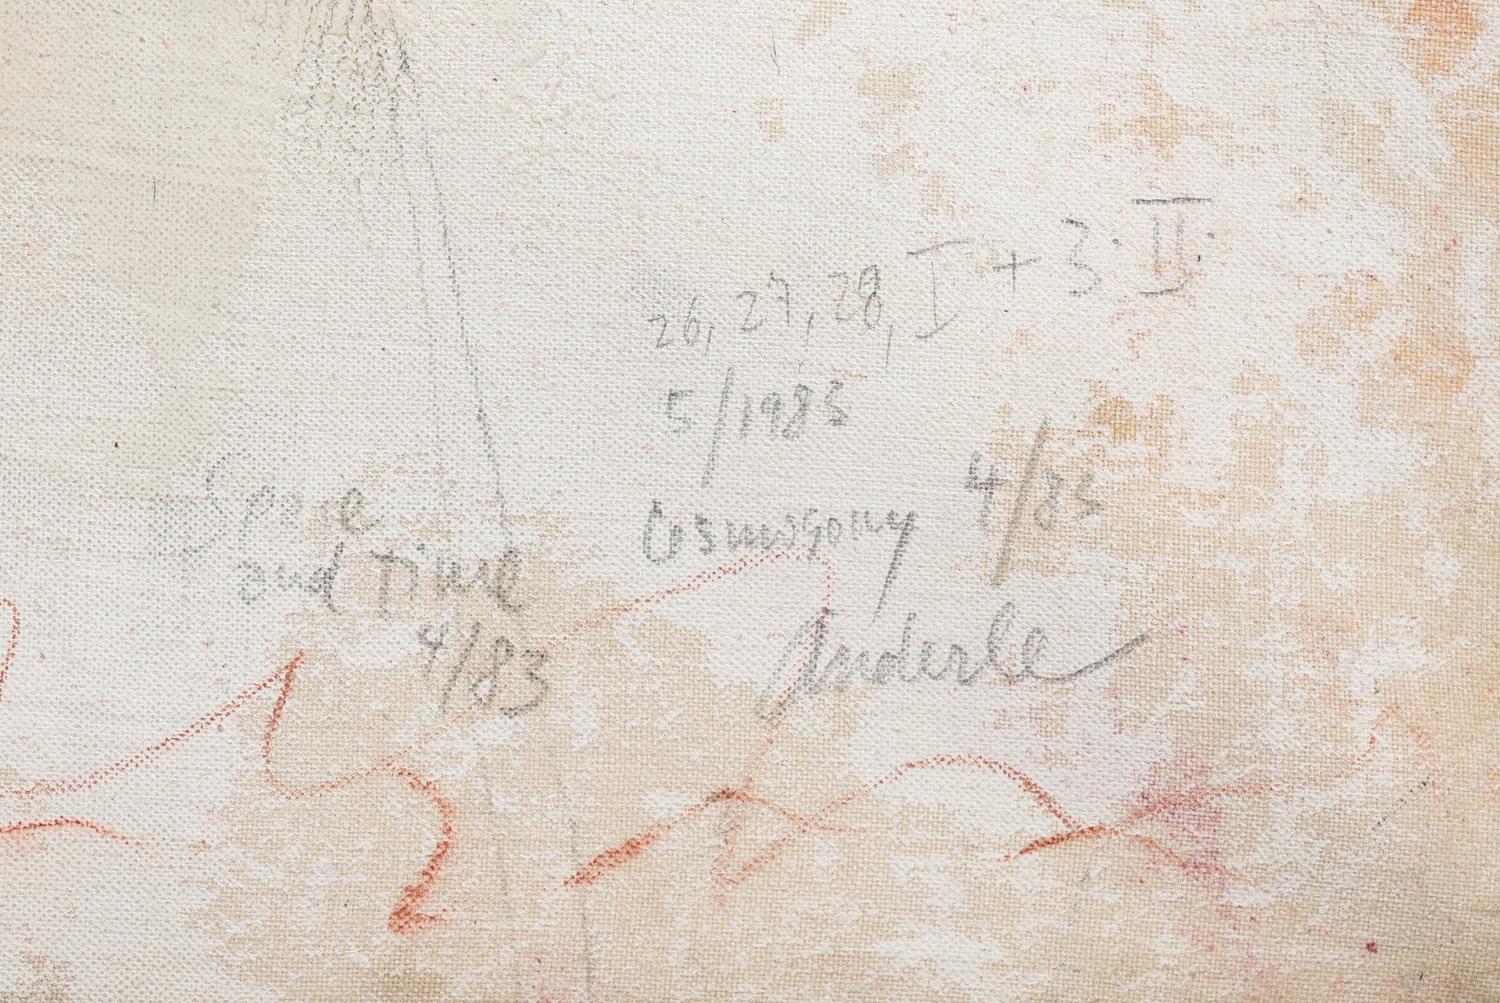 26, 27, 28, I + 3. II.
5/1983
Cosmogony 4/83
Space
and Time
4/83
Anderle